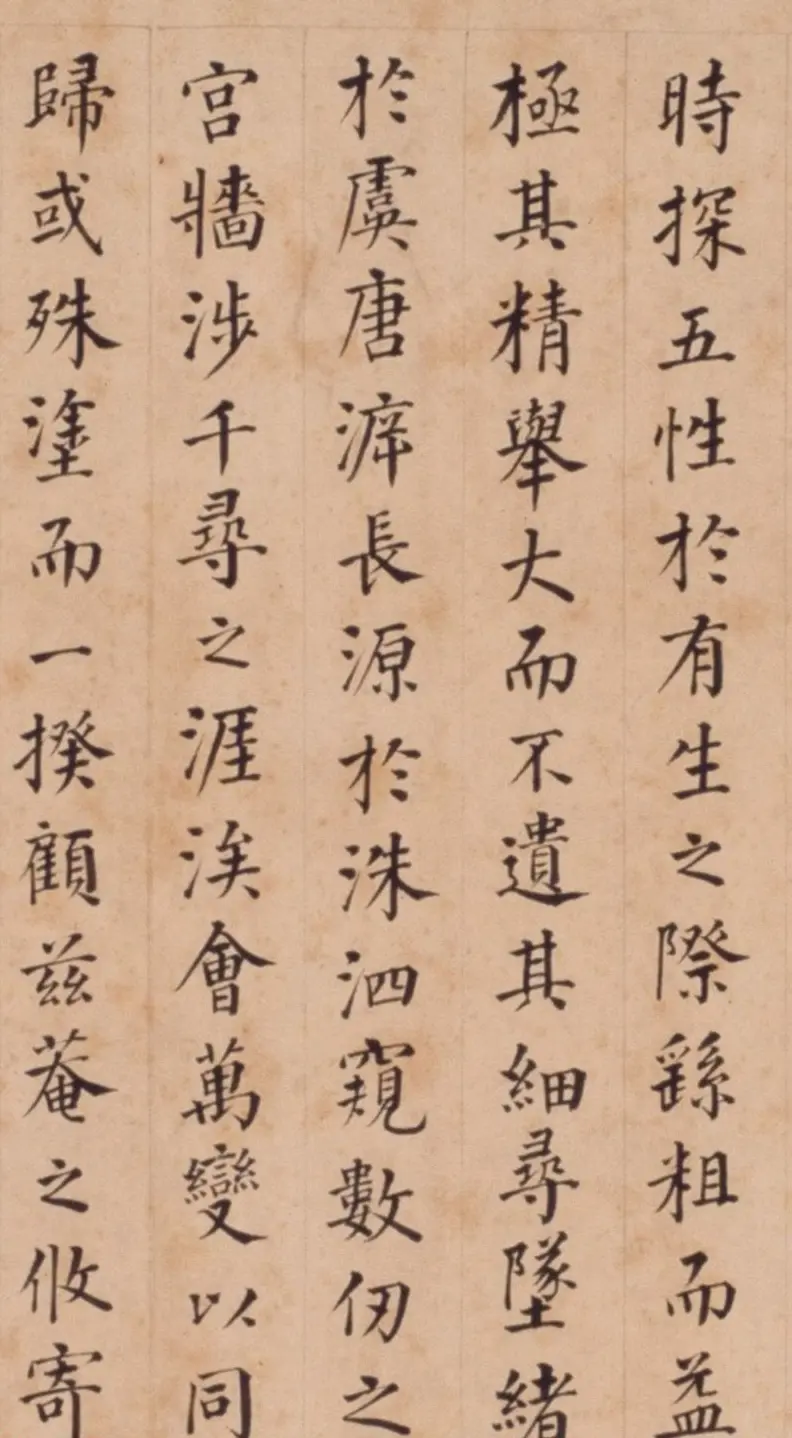 時探五性於有生之際繇粗而益
極其精舉大而不遺其細尋墜緒
於虞唐濬長源於洙泗窺數仞之
宮牆涉千尋之涯涘會萬變以同
歸或殊塗而一揆顧兹菴之攸寄